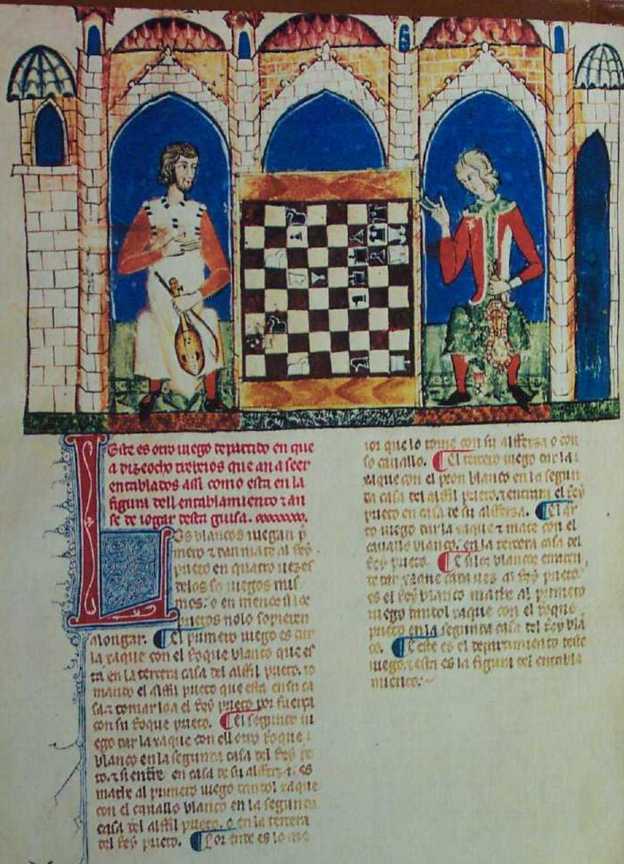 Este es otro iuego departido en que
a dizeocho trebeios que an a seer
entablados assi como esta en la
figura dell entablamiento & an
se de iogar desta guisa.
Los blancos iuegan p
mero & dan mate al Rey
prieto en quatro uezes
delos sos iuegos mis
mos. o en menos si los
prietos nolo sopieren
alongar. El primero iuego es dar
la xaque con el Roque blanco que es
ta en la tercera casa del alffil prieto. to
mando el alffil prieto que esta en su ca
sa. & tomar loa el Rey prieto por fuerça
con su Roque prieto. El segundo iu
ego dar la xaque con ell otro Roque
blanco en la segunda casa del Rey p
to. & si entre en casa de su alfferza. es
mathe al primero iuego dandol xaque
con el cauallo blanco en la segunda
casa del alffil prieto. o en la tercera
del Rey prieto. Por ende es lo me
ior que lo tome con su alfferza o con
so cauallo. El tercero iuego dar la
xaque con el peon blanco en la segun
da casa del alffil prieto. & entrara el Rey
prieto en casa de su alfferza. El quar
to iuego dar la xaque & mate con el
cauallo blanco. en la tercera casa del
Rey prieto. E si los blancos
xaque cada uez al Rey prieto.
es el Rey blanco mathe al primero
iuego dandol xaque con el Roque
prieto en la segunda casa del Rey blan
co. E este es el departimiento deste
iuego. & esta es la figura del entabla
miento.